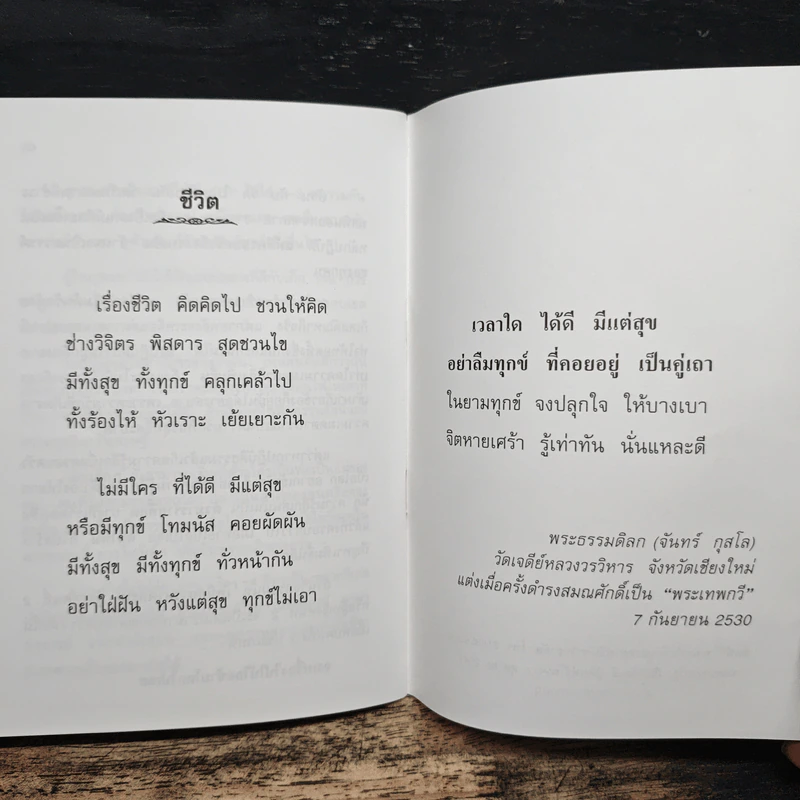 ชีวิต
เรื่องชีวิต คิดคิดไป ชวนให้คิด
ช่างวิจิตร พิสดาร สุดชวนไข
มีทั้งสุข ทั้งทุกข์ คลุกเคล้าไป
ทั้งร้องไห้ หัวเราะ เย้ยเยาะกัน
ไม่มีใคร ที่ได้ดี มีแต่สุข
หรือมีทุกข์ โทมนัส คอยผัดผัน
มีทั้งสุข มีทั้งทุกข์ ทั่วหน้ากัน
อย่าใฝ่ฝัน หวังแต่สุข ทุกข์ไม่เอา
เวลาใด ได้ดี มีแต่สุข
อย่าลืมทุกข์ ที่คอยอยู่ เป็นคู่เถา
ในยามทุกข์ จงปลุกใจ ให้บางเบา
จิตหายเศร้า รู้เท่าทัน นั่นแหละดี
พระธรรมดิลก (จันทร์ กุสโล)
วัดเจดีย์หลวงวรวิหาร จังหวัดเชียงใหม่
แต่งเมื่อครั้งดำรงสมณศักดิ์เป็น “พระเทพกวี”
7 กันยายน 2530